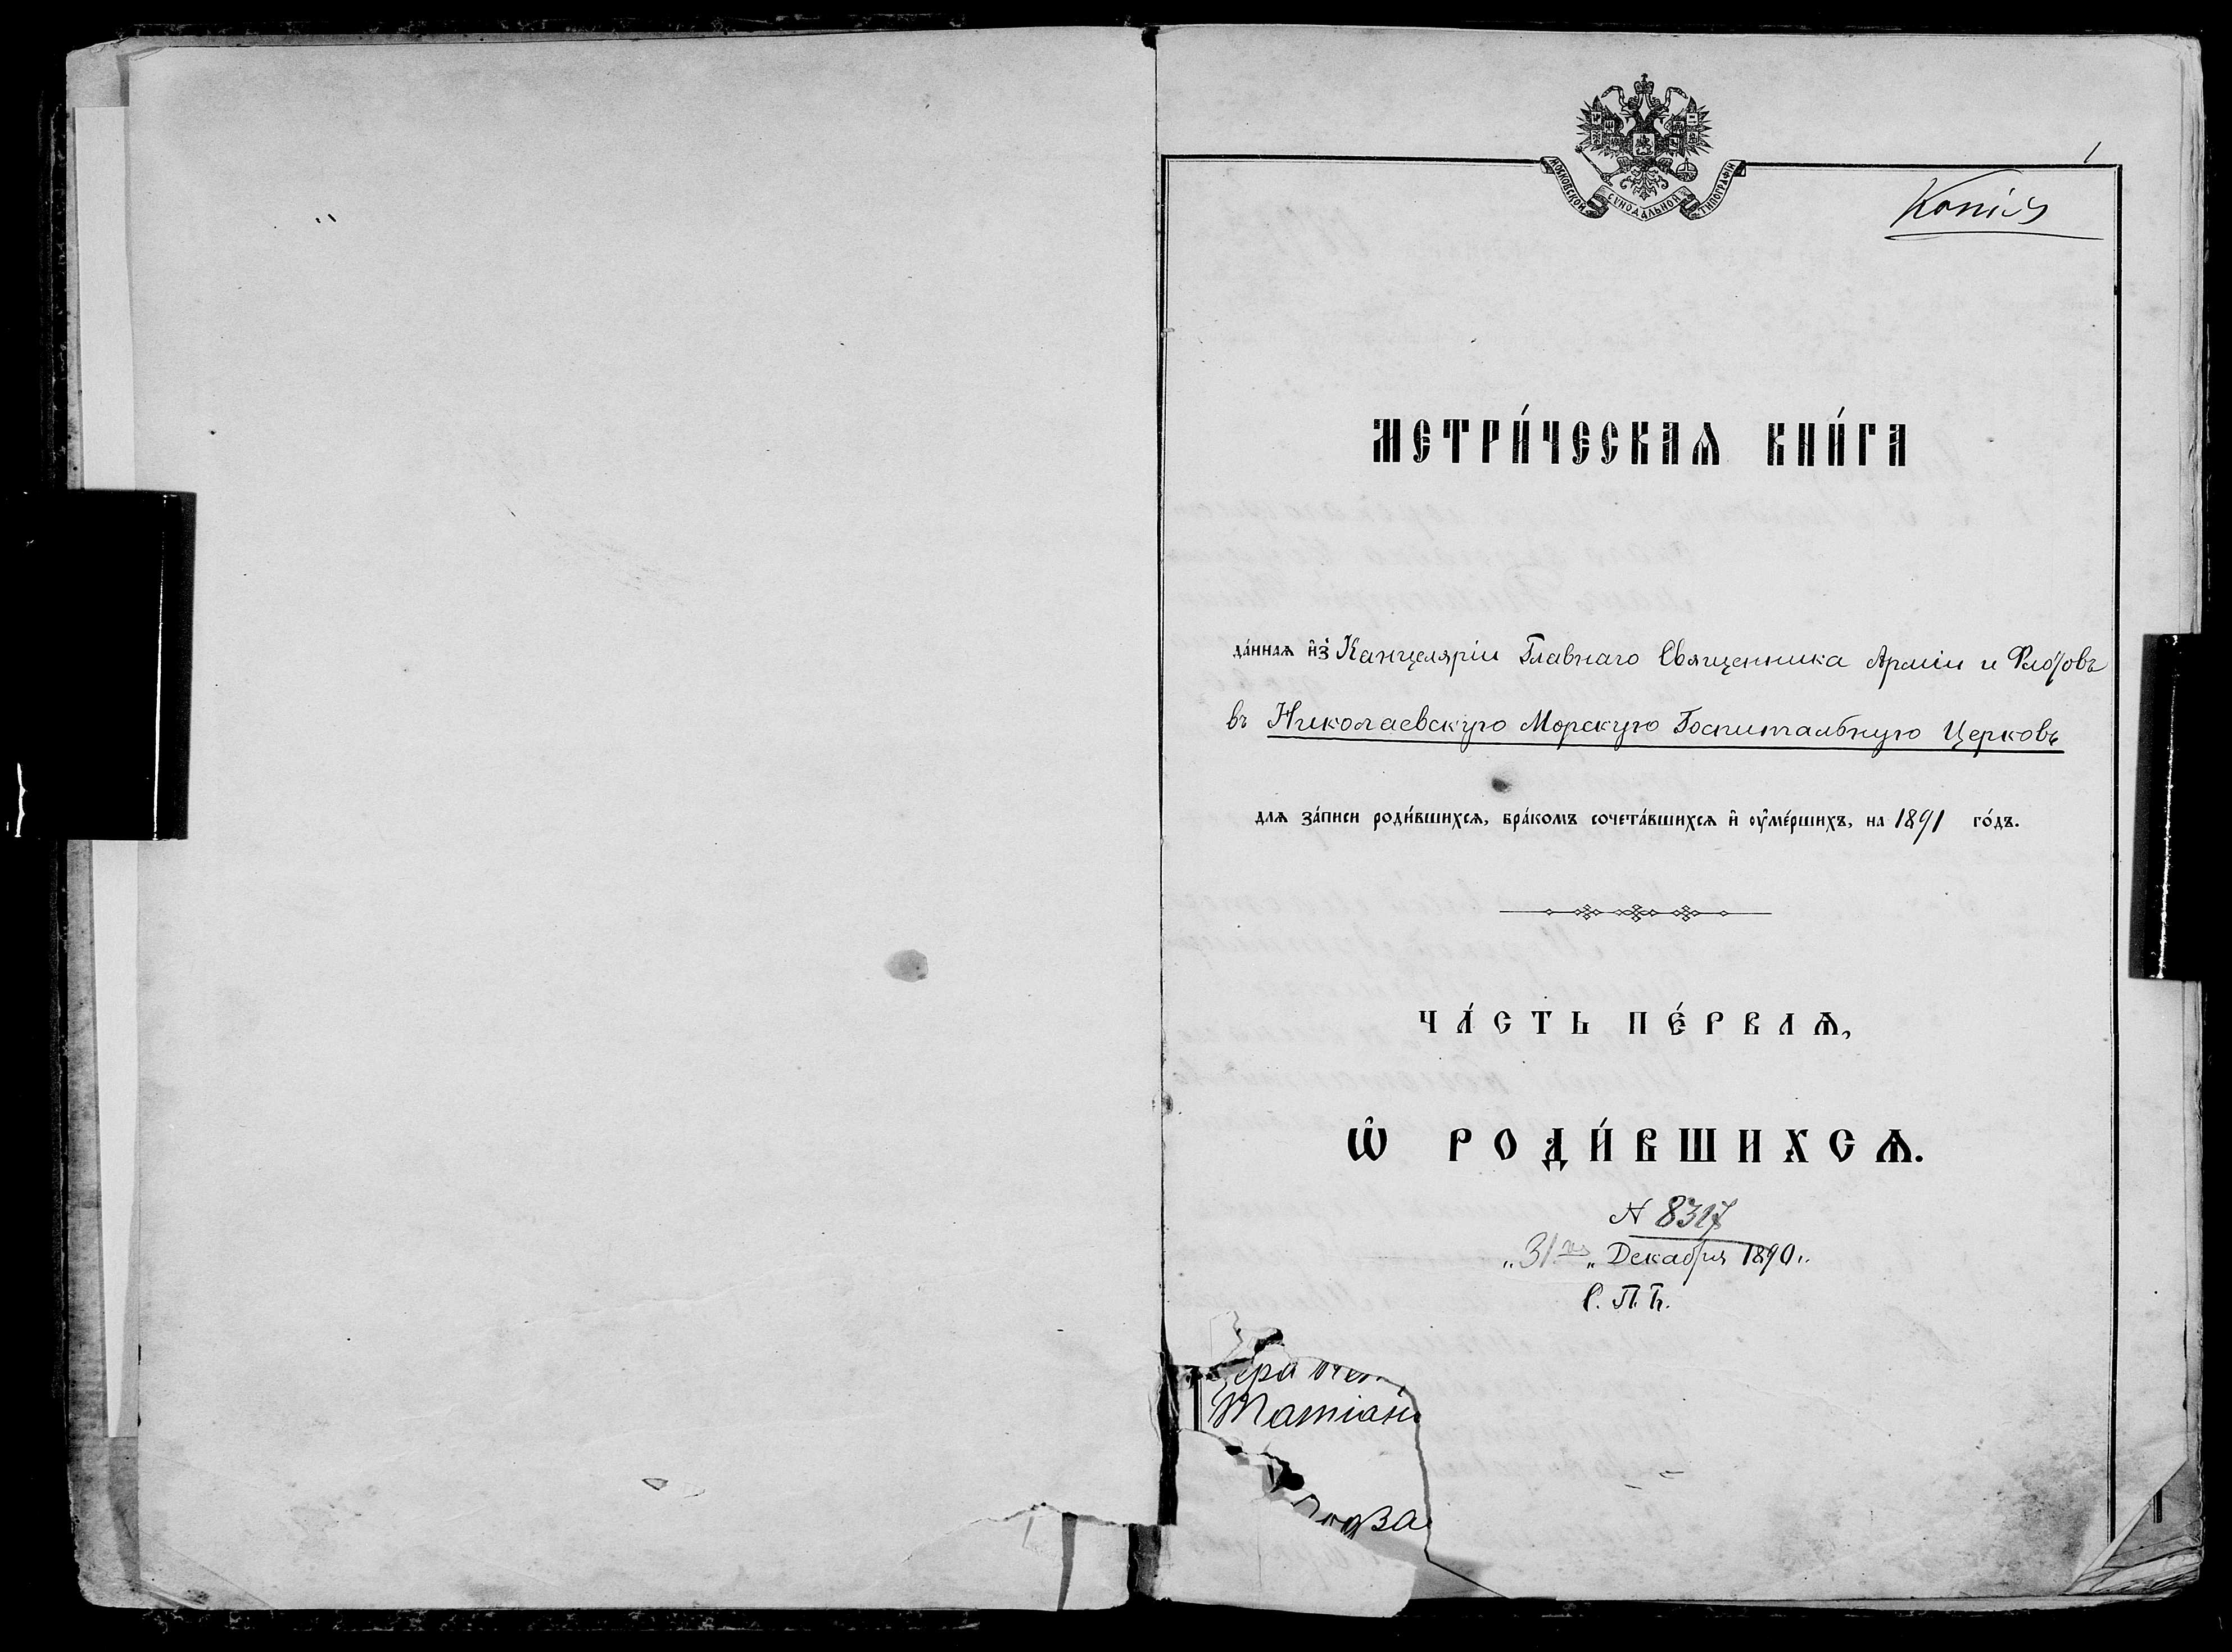 МОСКОВСКОЙ СѴНОДАЛЬНОЙ ТИПОГРАФІИ
1
Копія
МЕТРИ́ЧЕСКАѦ КНИ́ГА
да́ннаѧ и҆з̾ Канцеляріи Главнаго Священника Арміи и Флотовъ
въ Николаевскую Морскую Госпитальную Церковь
длѧ за́писи роди́вшихсѧ, бра́комъ сочета́вшихсѧ и҆ ᲂу҆ме́ршихъ, на 1891 го́дъ.
ЧА́СТЬ ПЕ́РВАѦ,
Ѡ҆ РОДИ́ВШИХСѦ.
№ 8317
„31го„ Декабря 1890..
С. П. Б.